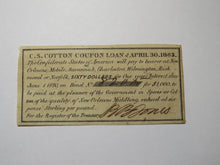 C.S. COTTON COUPON LOAN of APRIL 30, 1863.
The Confederate States of America will pay to bearer at New
Orleans, Mobile, Savannah, Charleston, Wilmington, Rich-
mond or Norfolk, SIXTY DOLLARS, for one year's Interest due
June 1 on Bond No. for $1,000,
to be paid at the pleasure of the Government in Specie or Cot-
ton of the quality of New Orleans Middling, valued at
pence Sterling per pound.
For the Register of the Treasury